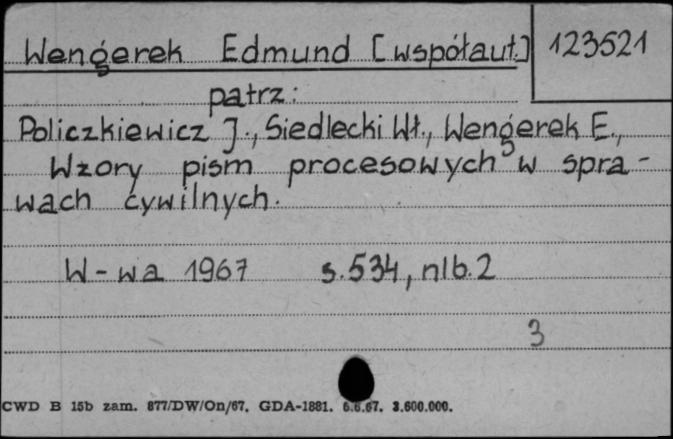 Wengerek Edmund [współaut.] 123521
patrz:
Policzkiewicz J., Siedlecki Wł., Wengerek E.,
Wzory pism procesowych w spra-
wach cywilnych.
W-wa 1967 s. 534, nlb. 2
3
CWD B 15b zam. 877/DW/On/67. GDA-1881. 6.6.67. 3.600.000.